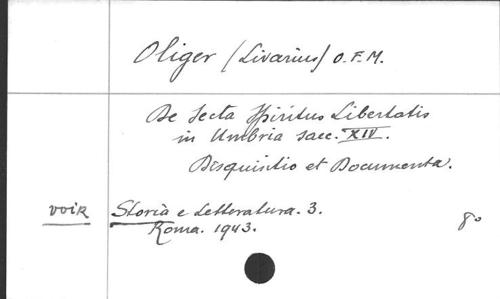 Oliger (Livarius) O.F.M.
De Secta Spiritus Libertatis
in Umbria saec. XIV.
Disquisitio et Documenta.
voir Storia e Letteratura. 3. 8°
Roma. 1943.